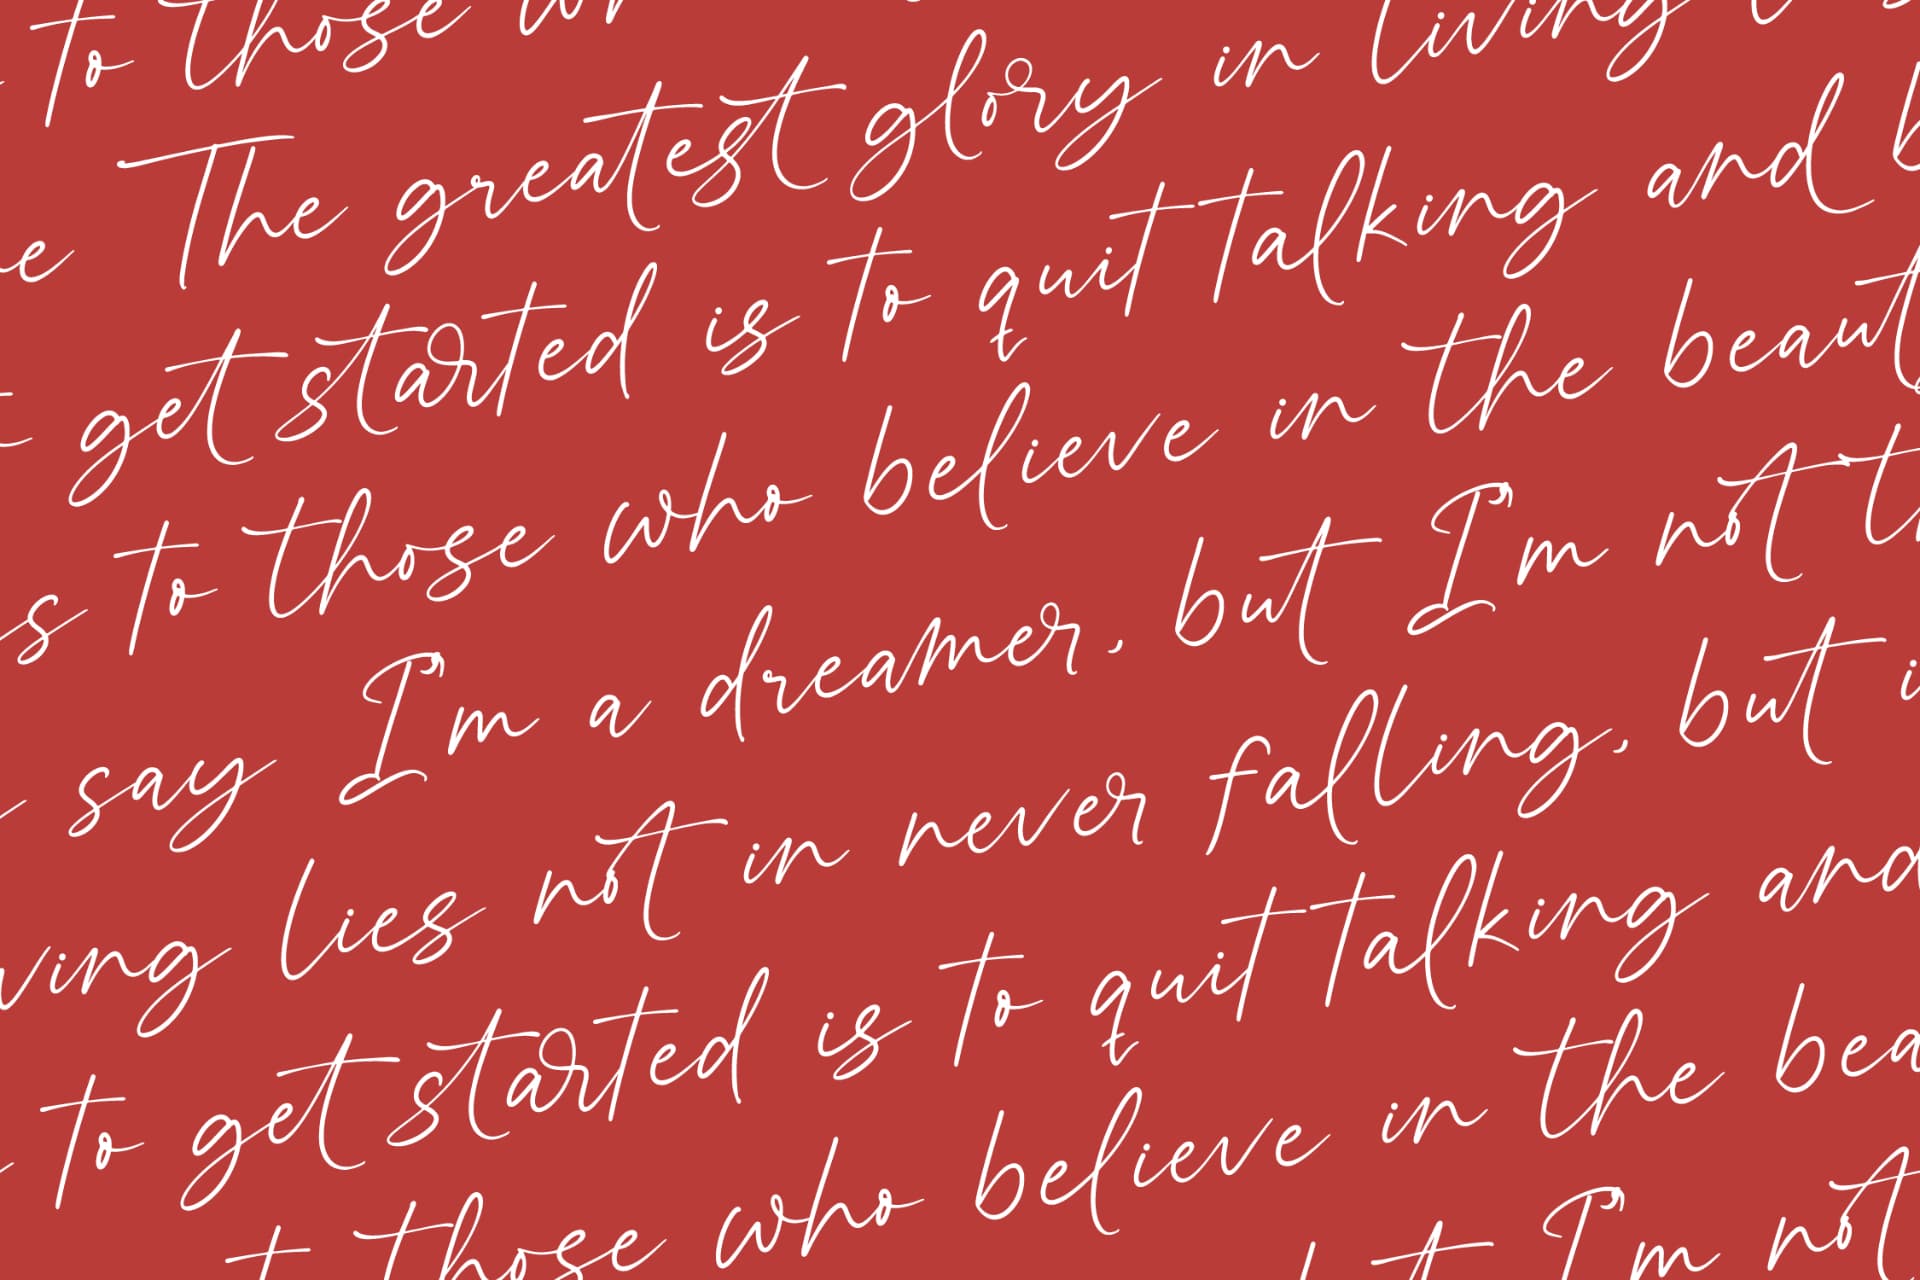 to those
The greatest glory in living
get started is to quit talking and
to those who believe in the
say I'm a dreamer, but I'm not
lies not in never falling, but
to get started is to quit talking and
those who believe in the
I'm not